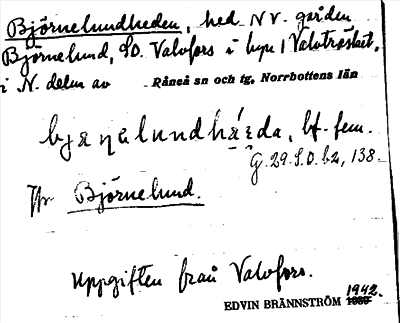 Björnelundheden, hed NV. gården
Björnelund, SO. Valvfors i byn Valvträsket,
i N. delen av Råneå sn och tg, Norrbottens län
bf. fem.
G. 29. S.D. b2, 138.
Jfr Björnelund.
Uppgiften från Valvfors.
1942.
EDVIN BRÄNNSTRÖM 1939